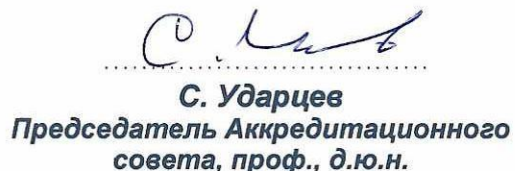 С. Ударцев
Председатель Аккредитационного
совета, проф., д.ю.н.